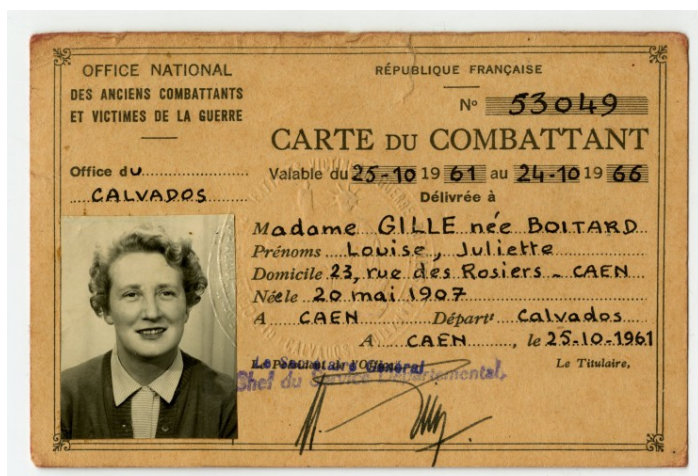 OFFICE NATIONAL
DES ANCIENS COMBATTANTS
ET VICTIMES DE LA GUERRE
Office du
CALVADOS
RÉPUBLIQUE FRANÇAISE
Nº 53049
CARTE DU COMBATTANT
Valable du 25-10 1961 au 24-10 1966
Délivrée à
Madame GILLE née BOITARD
Prénoms Louise, Juliette
Domicile 23, rue des Rosiers - CAEN
Née le 20 mai 1907
A CAEN Départt Calvados
A CAEN, le 25-10-1961
Le Secrétaire Général
Chef du Service Départemental,
Le Titulaire,